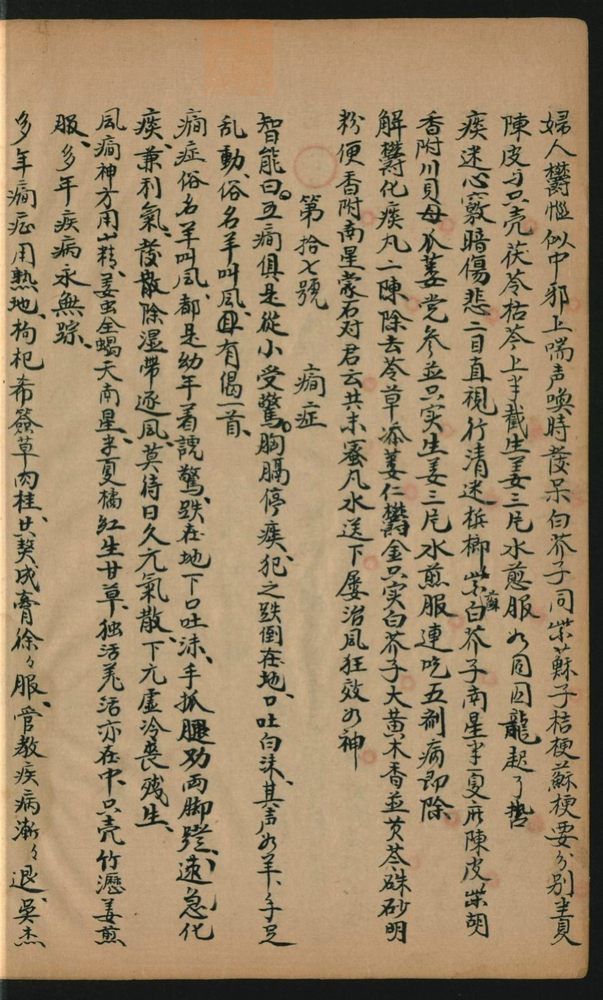 婦人欝惱似中邪上喘声喚時發呆白芥子同柴蘇子桔梗蘇梗要分別半貝
陳皮与只壳茯苓枯芩上半截生姜三片水煎服如同囚龍起了勢
痰迷心竅暗傷悲二目直視行清迷梹榔柴蘇白芥子南星半夏麻陳皮柴胡
香附川貝母瓜蒌党参並只实生姜三片水煎服連吃五剤病即除
解欝化痰丸二陳除去苓草添蒌仁欝金只实白芥子大黄木香並芡苓硃砂明
粉便香附南星蒙石对君云共末蜜凡水送下屡治風狂效如神
第拾七號 癎症
智能曰五癎俱是從小受驚胸膈停痰犯之跌倒在地口吐白沫其声如羊手足
乱動俗名羊叫風有偈一首
癎症俗名羊叫風都是幼年着諕驚跌在地下口吐沫手抓腿劝両脚蹬速急化
痰兼利氣發散除濕帶逐風莫待日久亢氣散下亢虚冷丧殘生
風癎神方用山精姜虫全蝎天南星半夏橘紅生甘草独活羗活亦在中只壳竹瀝姜煎
服多年疾病永無踪
多年癎症用熟地枸杞希簽草肉桂共熬成膏徐々服管教疾病漸々退吴杰